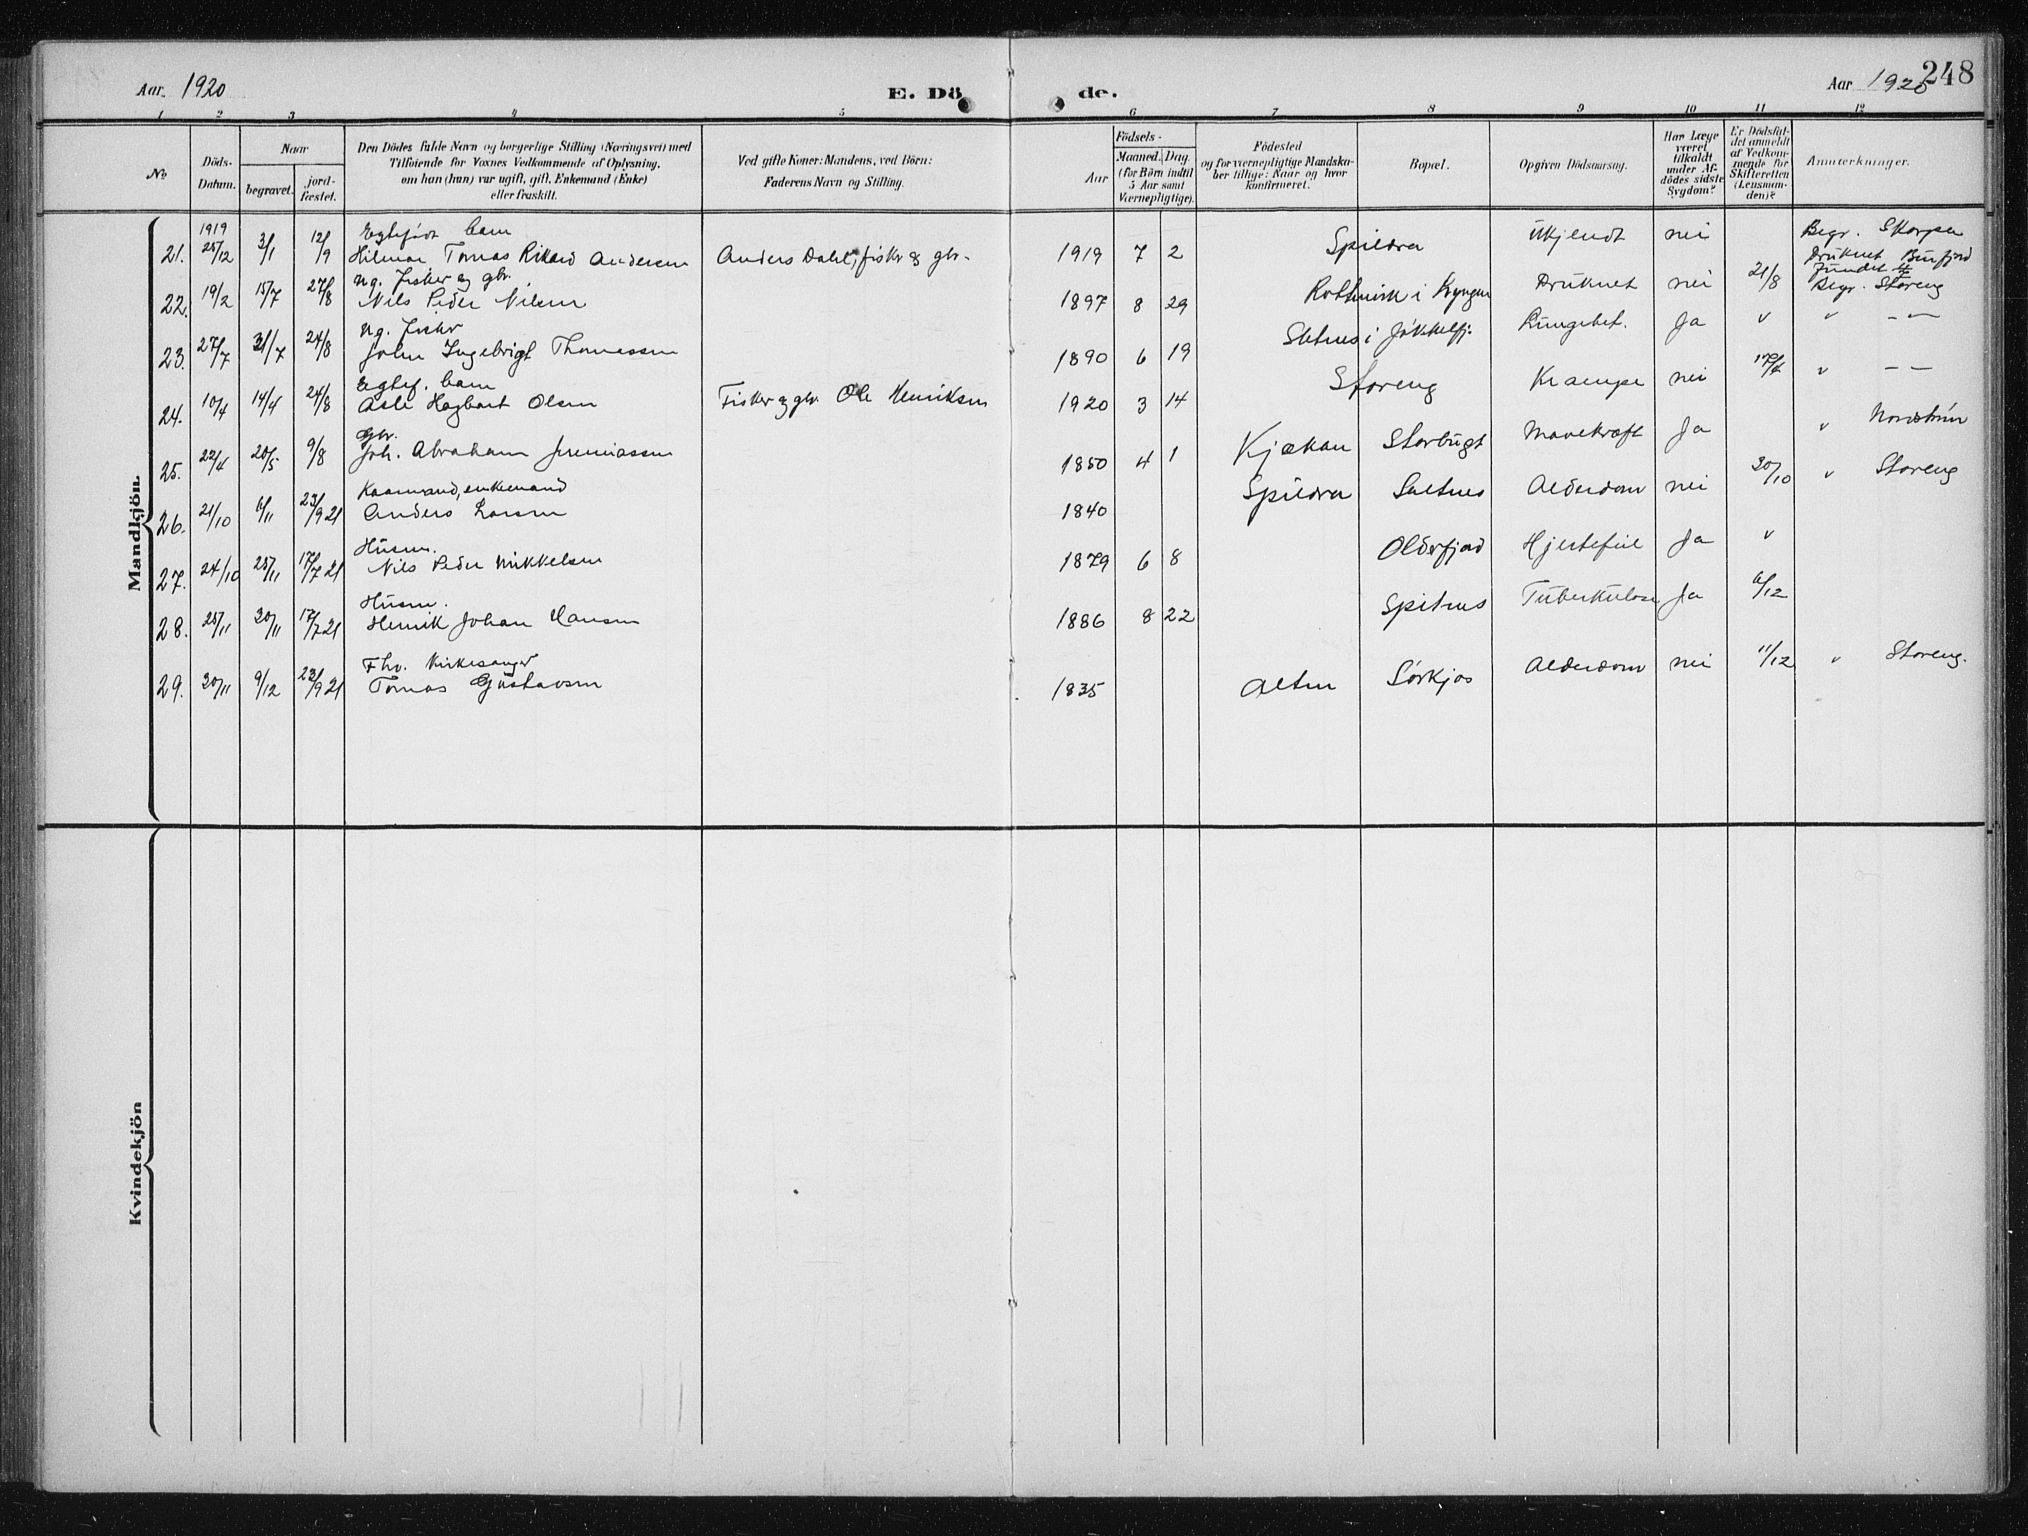 248
Aar 1920 E. Dö de. Aar 1920
1 2 3 4 5 6 7 8 9 10 11 12
No
Döds-
Datum.
Naar
begravet.
jord-
fæstet.
Den Dödes fulde Navn og borgerlige Stilling (Næringsvei) med
Tilföiende for Voxnes Vedkommende af Oplysning,
om han (hun) var ugift, gift, Enkemand (Enke)
eller fraskilt.
Ved gifte Koner: Mandens, ved Börn:
Faderens Navn og Stilling.
Födsels-
Aar
Maaned. Dag.
(for Börn indtil
5 Aar samt
Værnepligtige).
Födested
og for værnepligtige Mandska-
ber tillige: Naar og hvor
konfirmeret.
Bopæl.
Opgiven Dödsaarsag.
Har Læge
været
tilkaldt
under Af-
dödes sidste
Sygdom?
Er Dödsfal-
det anmeldt
af Vedkom-
mende for
Skifteretten
(Lensman-
den)?
Anmærkninger.
Mandkjön.
1919 Egtefödt barn Begr. Skorpen
21. 25/12 3/1 12/9 Hilmar Tomas Rikard Andersen Anders Dahl, fisker og gbr. 1919 7 2 Spildra Ukjendt nei
Ug. fisker og gbr. Druknet Burfjord
22. 19/2 15/7 27/8 Nils Peder Nilsen 1897 8 29 Rottenvik i Lyngen Druknet nei 21/8 Begr. Storeng
Ug. fisker
23. 27/7 31/7 24/8 John Ingebrigt Thomassen 1890 6 19 Sletnes i Jøkkelfj. Lungebet. Ja " " — —
Egtef. barn
24. 10/4 14/4 24/8 Asle Hagbart Olsen Fisker og gbr. Ole Henriksen 1920 3 14 Storeng Krampe nei 17/4 " — —
Gbr.
25. 22/4 20/5 9/8 Joh. Abraham Jeremiassen 1850 4 1 Kjækan Storbugt Mavekræft Ja " Nordstrøm
Kaarmand, enkemand
26. 21/10 6/11 23/9 21 Anders Larsen 1840 Spildra Saltnes Alderdom nei 30/10 " Storeng
Husm.
27. 24/10 25/11 17/7 21 Nils Peder Mikkelsen 1879 6 8 Olderfjord Hjertefeil Ja "
Husm.
28. 25/11 30/11 17/7 21 Henrik Johan Hansen 1886 8 22 Spitnes Tuberkulose Ja 6/12
Fhv. Kirkesanger
29. 30/11 9/12 23/9 21 Tomas Gustavsen 1835 Alten Sørkjos Alderdom nei 11/12 " Storeng.
Kvindekjön